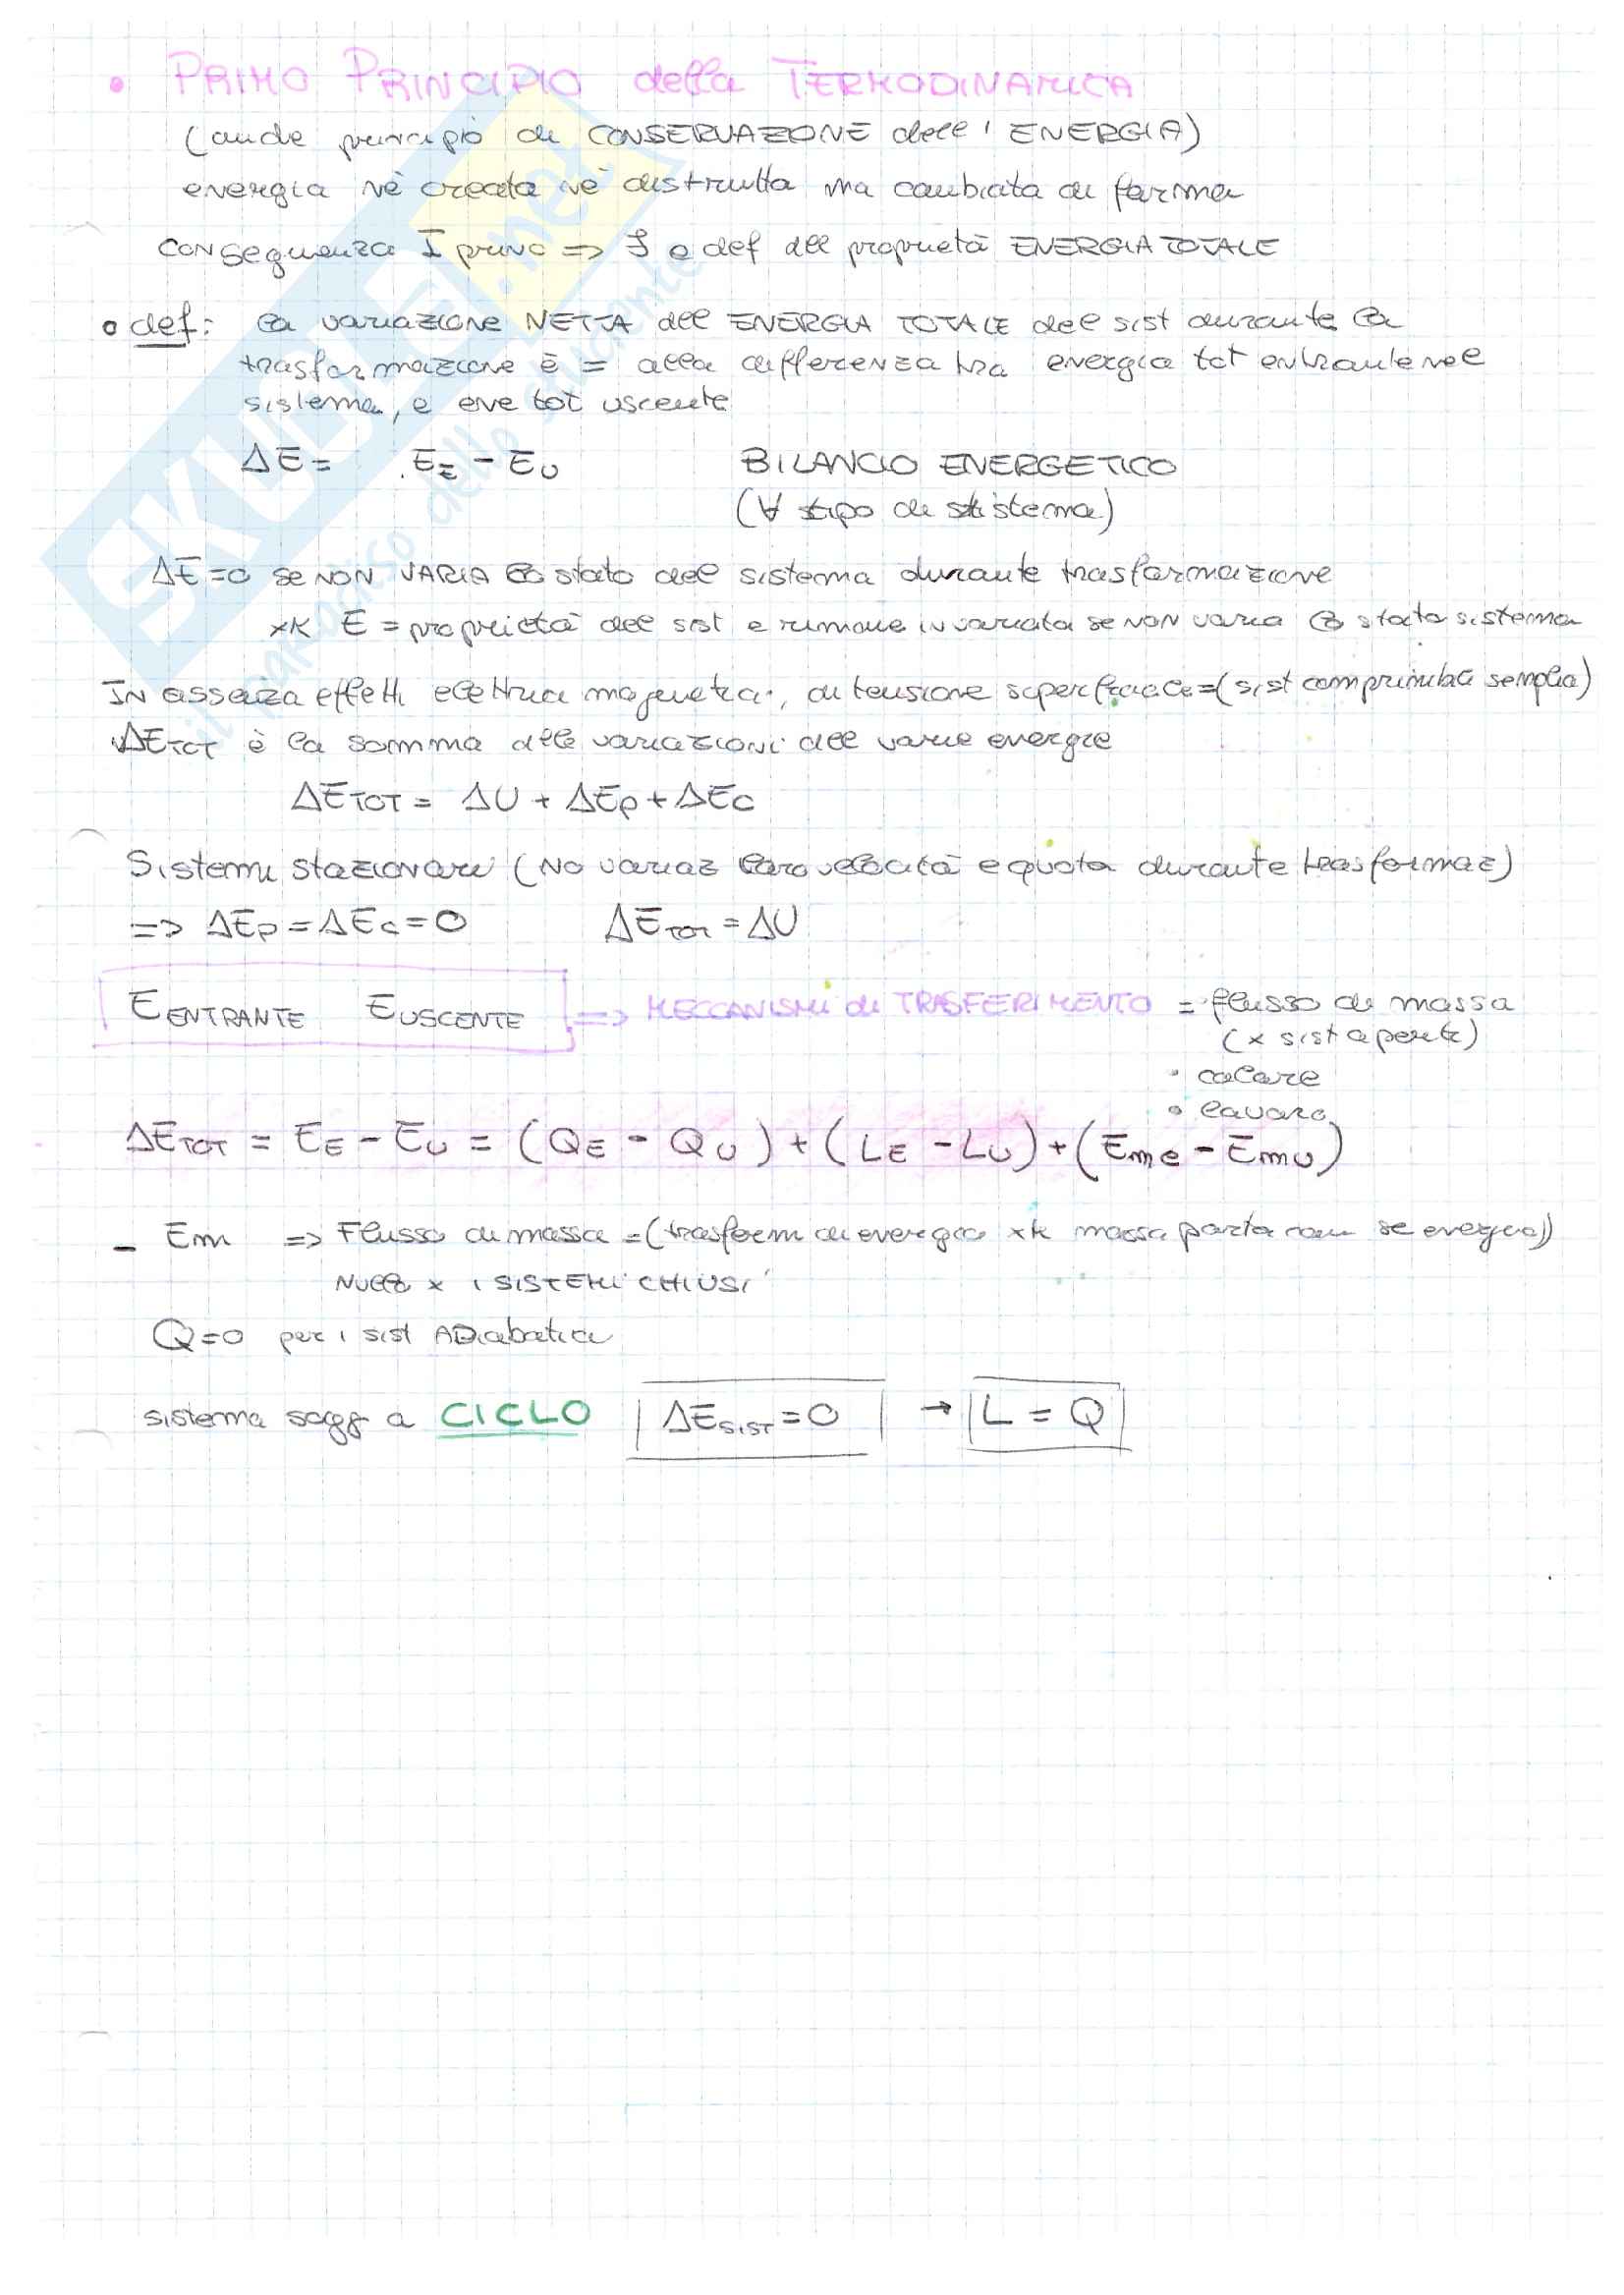 • PRIMO PRINCIPIO della TERMODINAMICA
(anche principio di CONSERVAZIONE dell' ENERGIA)
energia nè creata nè distrutta ma cambiata di forma
conseguenza I princ => ∃ e def dell proprietà ENERGIA TOTALE
• def: la variazione NETTA dell ENERGIA TOTALE del sist durante la
trasformazione è = alla differenza tra energia tot entrante nel
sistema, e ene tot uscente
ΔE = EE - EU BILANCIO ENERGETICO
(∀ tipo di sistema)
ΔE=0 se NON VARIA lo stato del sistema durante trasformazione
xk E = proprietà del sist e rimane invariata se non varia lo stato sistema
IN assenza effetti elettrici magnetici, di tensione superficiale=(sist comprimibili semplici)
ΔETOT è la somma delle variazioni dell varie energie
ΔETOT = ΔU + ΔEp + ΔEc
Sistemi stazionari (No variaz loro velocità e quota durante trasformaz)
=> ΔEp = ΔEc = 0 ΔETOT = ΔU
EENTRANTE EUSCENTE => MECCANISMI di TRASFERIMENTO = • flusso di massa
(x sist aperti)
• calore
• lavoro
ΔETOT = EE - EU = (QE - QU) + (LE - LU) + (Eme - EmU)
- Em => Flusso di massa = (trasferim di energia xk massa porta con se energia)
Nullo x i SISTEMI CHIUSI
Q=0 per i sist ADiabatici
sistema sogg a CICLO ΔESIST = 0 → L = Q
SKUOLA.net
il paradiso dello studente